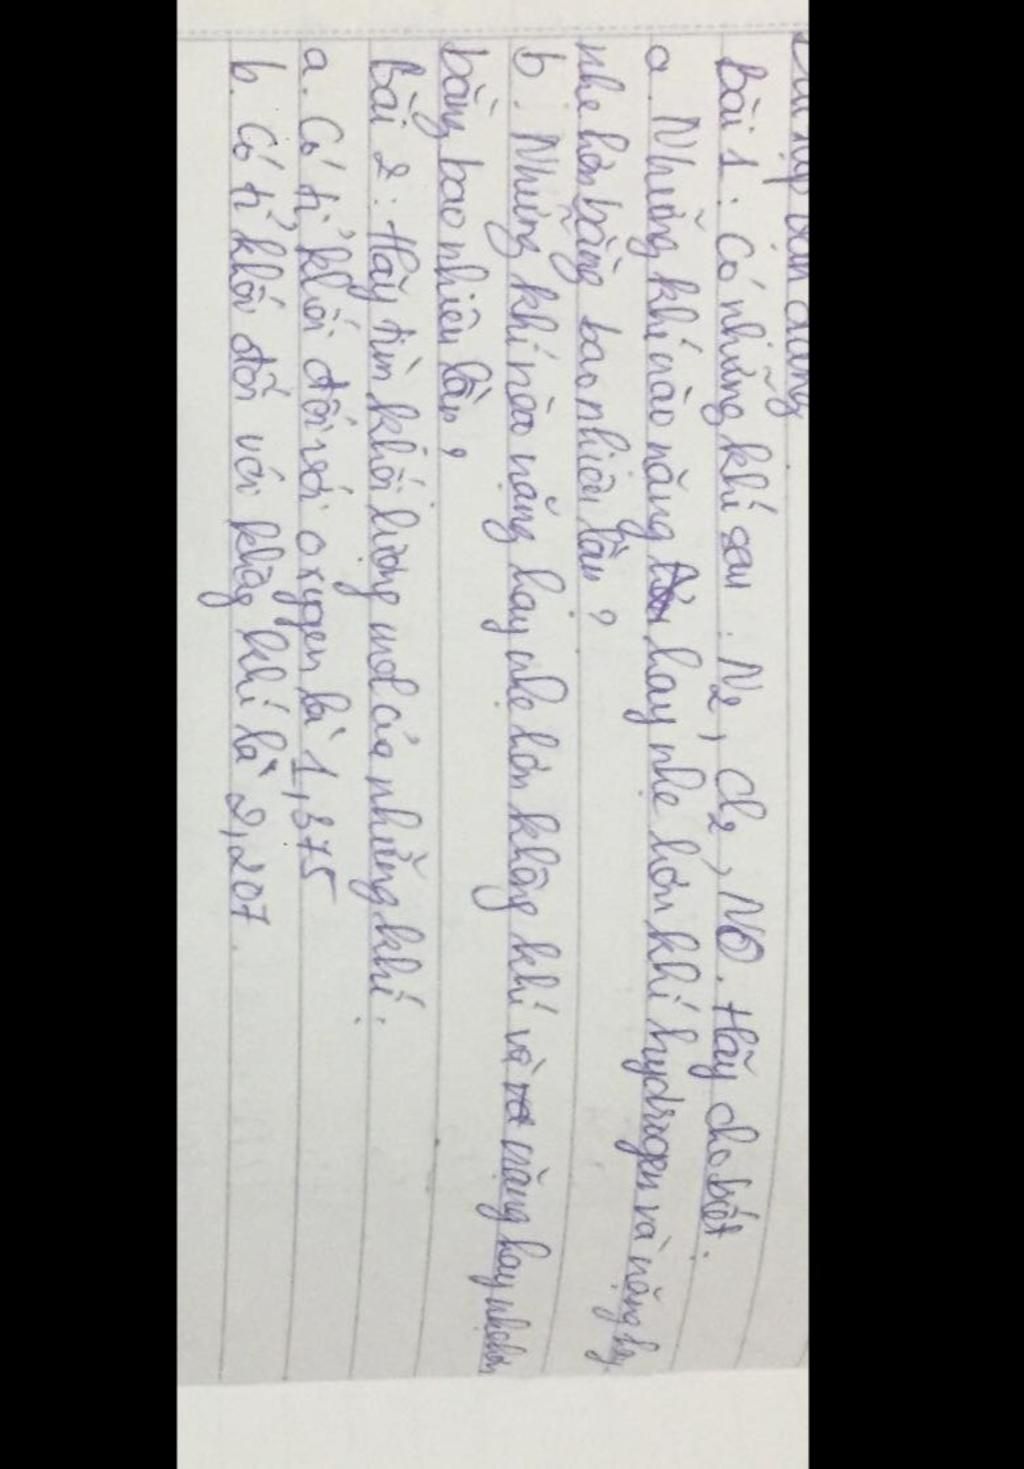 vận dụng
Bài 1: Có những khí sau: N2, Cl2, NO. Hãy cho biết:
a. Những khí nào nặng hay nhẹ hơn khí hydrogen và nặng hay
nhẹ hơn bằng bao nhiêu lần?
b. Những khí nào nặng hay nhẹ hơn không khí và nặng hay nhẹ hơn
bằng bao nhiêu lần?
Bài 2: Hãy tìm khối lượng mol của những khí:
a. Có tỉ khối đối với oxygen là 1,375
b. Có tỉ khối đối với không khí là 2,207.